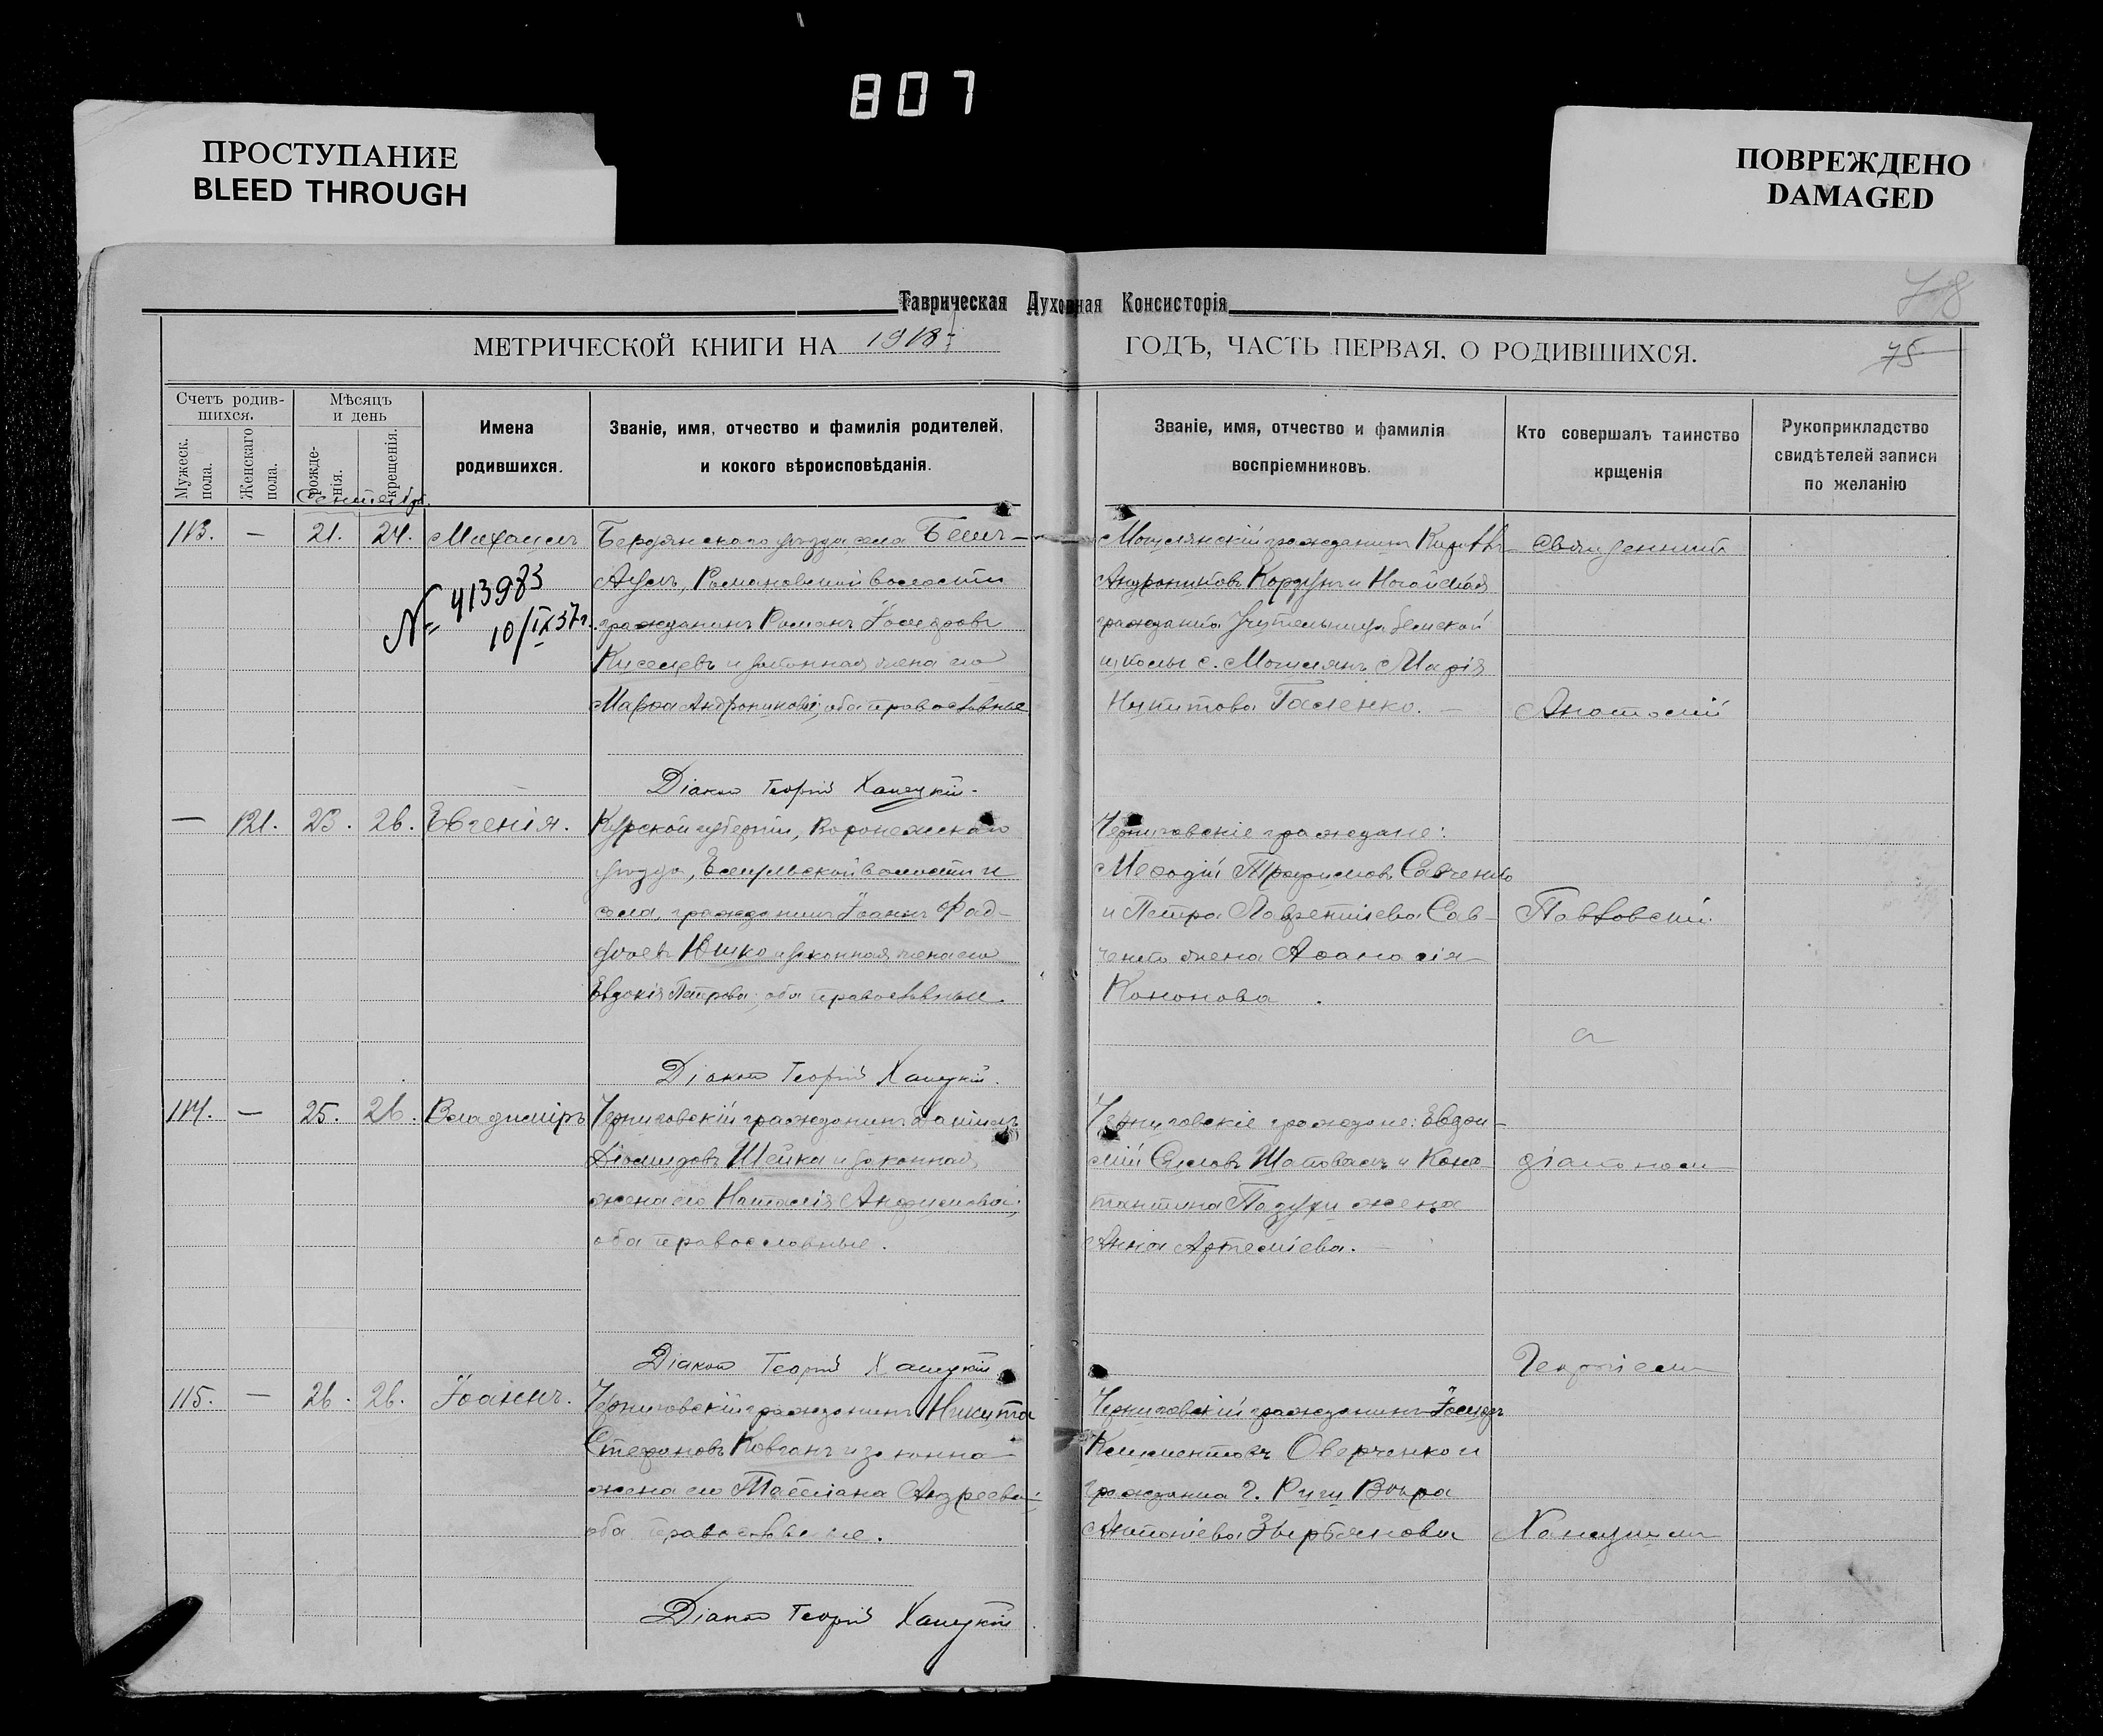 807
ПРОСТУПАНИЕ
BLEED THROUGH
ПОВРЕЖДЕНО
DAMAGED
78
Таврическая Духовная Консисторія
МЕТРИЧЕСКОЙ КНИГИ НА 1918 г
ГОДЪ, ЧАСТЬ ПЕРВАЯ. О РОДИВШИХСЯ.
75
Счетъ родив-
шихся.
Мужеск. пола.
Женскаго пола.
Мѣсяцъ
и день
рожде-
нія.
крещенія.
Имена
родившихся.
Званіе, имя, отчество и фамилія родителей,
и кокого вѣроисповѣданія.
Званіе, имя, отчество и фамилія
воспріемниковъ.
Кто совершалъ таинство
крщенія
Рукоприкладство
свидѣтелей записи
по желанію
Сентябрь
113. — 21. 24. Михаилъ
№ 413983
10/IX 37 г.
Бердянского уѣзда села Бешъ-
Аулъ, Романовской волости
гражданинъ Романъ Іосифовъ
Киселевъ и законная жена его
Марѳа Андроникова; оба православные
Діаконъ Георгій Ханецкій.
Андрониковъ Кордунъ и Ногайская
гражданка учительница земской
школы с. Могилянъ Марія
Никитова Гасленко. —
Священникъ
Анатолій
Павловскій
— 121. 23. 26. Евгенія.
Курской губерніи, Воронежскаго
уѣзда, волости и
села, гражданинъ Іоаннъ Фад-
деевъ Юшко и законная жена его
Евдокія Петрова; оба православные.
Діаконъ Георгій Ханецкій.
Черниговскіе граждане:
Меѳодій Трофимовъ Савченко
и Петра Лаврентіева Сав-
ченко жена Аѳанасія
Кононова.
а
114. — 25. 26. Владиміръ
Черниговскій гражданинъ Даніилъ
Діомидовъ Шейка и законная
жена его Наталія Анфимова;
оба православные.
Діаконъ Георгій Ханецкій
Черниговскіе граждане: Евдо-
кій Силовъ Шаповалъ и Конс-
тантина Падуки жена
Анна Артеміева.
діакономъ
Георгіемъ
115. — 26. 26. Іоаннъ.
Черниговскій гражданинъ Никита
Стефановъ Ковганъ и законна
жена его Татіана Андреева;
оба православные.
Діаконъ Георгій Ханецкій
Черниговскій гражданинъ Іосифъ
Климентовъ Оверченко и
гражданка г. Риги
Антоніева
Ханецкимъ